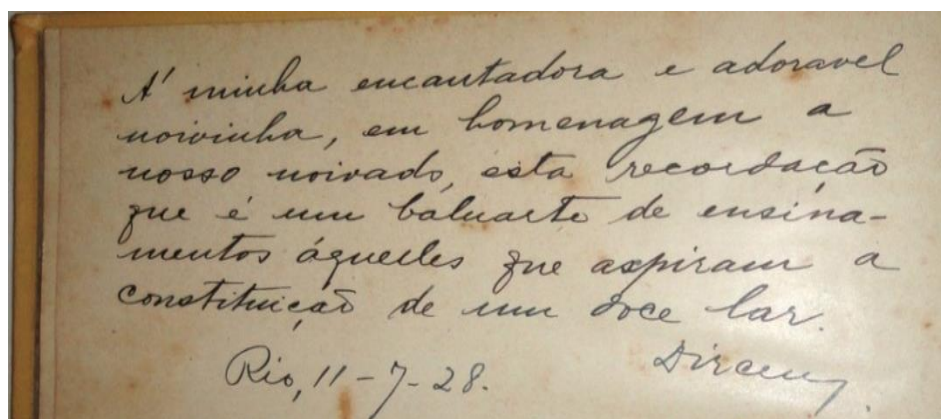 A' minha encantadora e adoravel
noivinha, em homenagem a
nosso noivado, esta recordação
que é um baluarte de ensina-
mentos áquelles que aspiram a
constituição de um doce lar.
Rio, 11-7-28. Dirceu